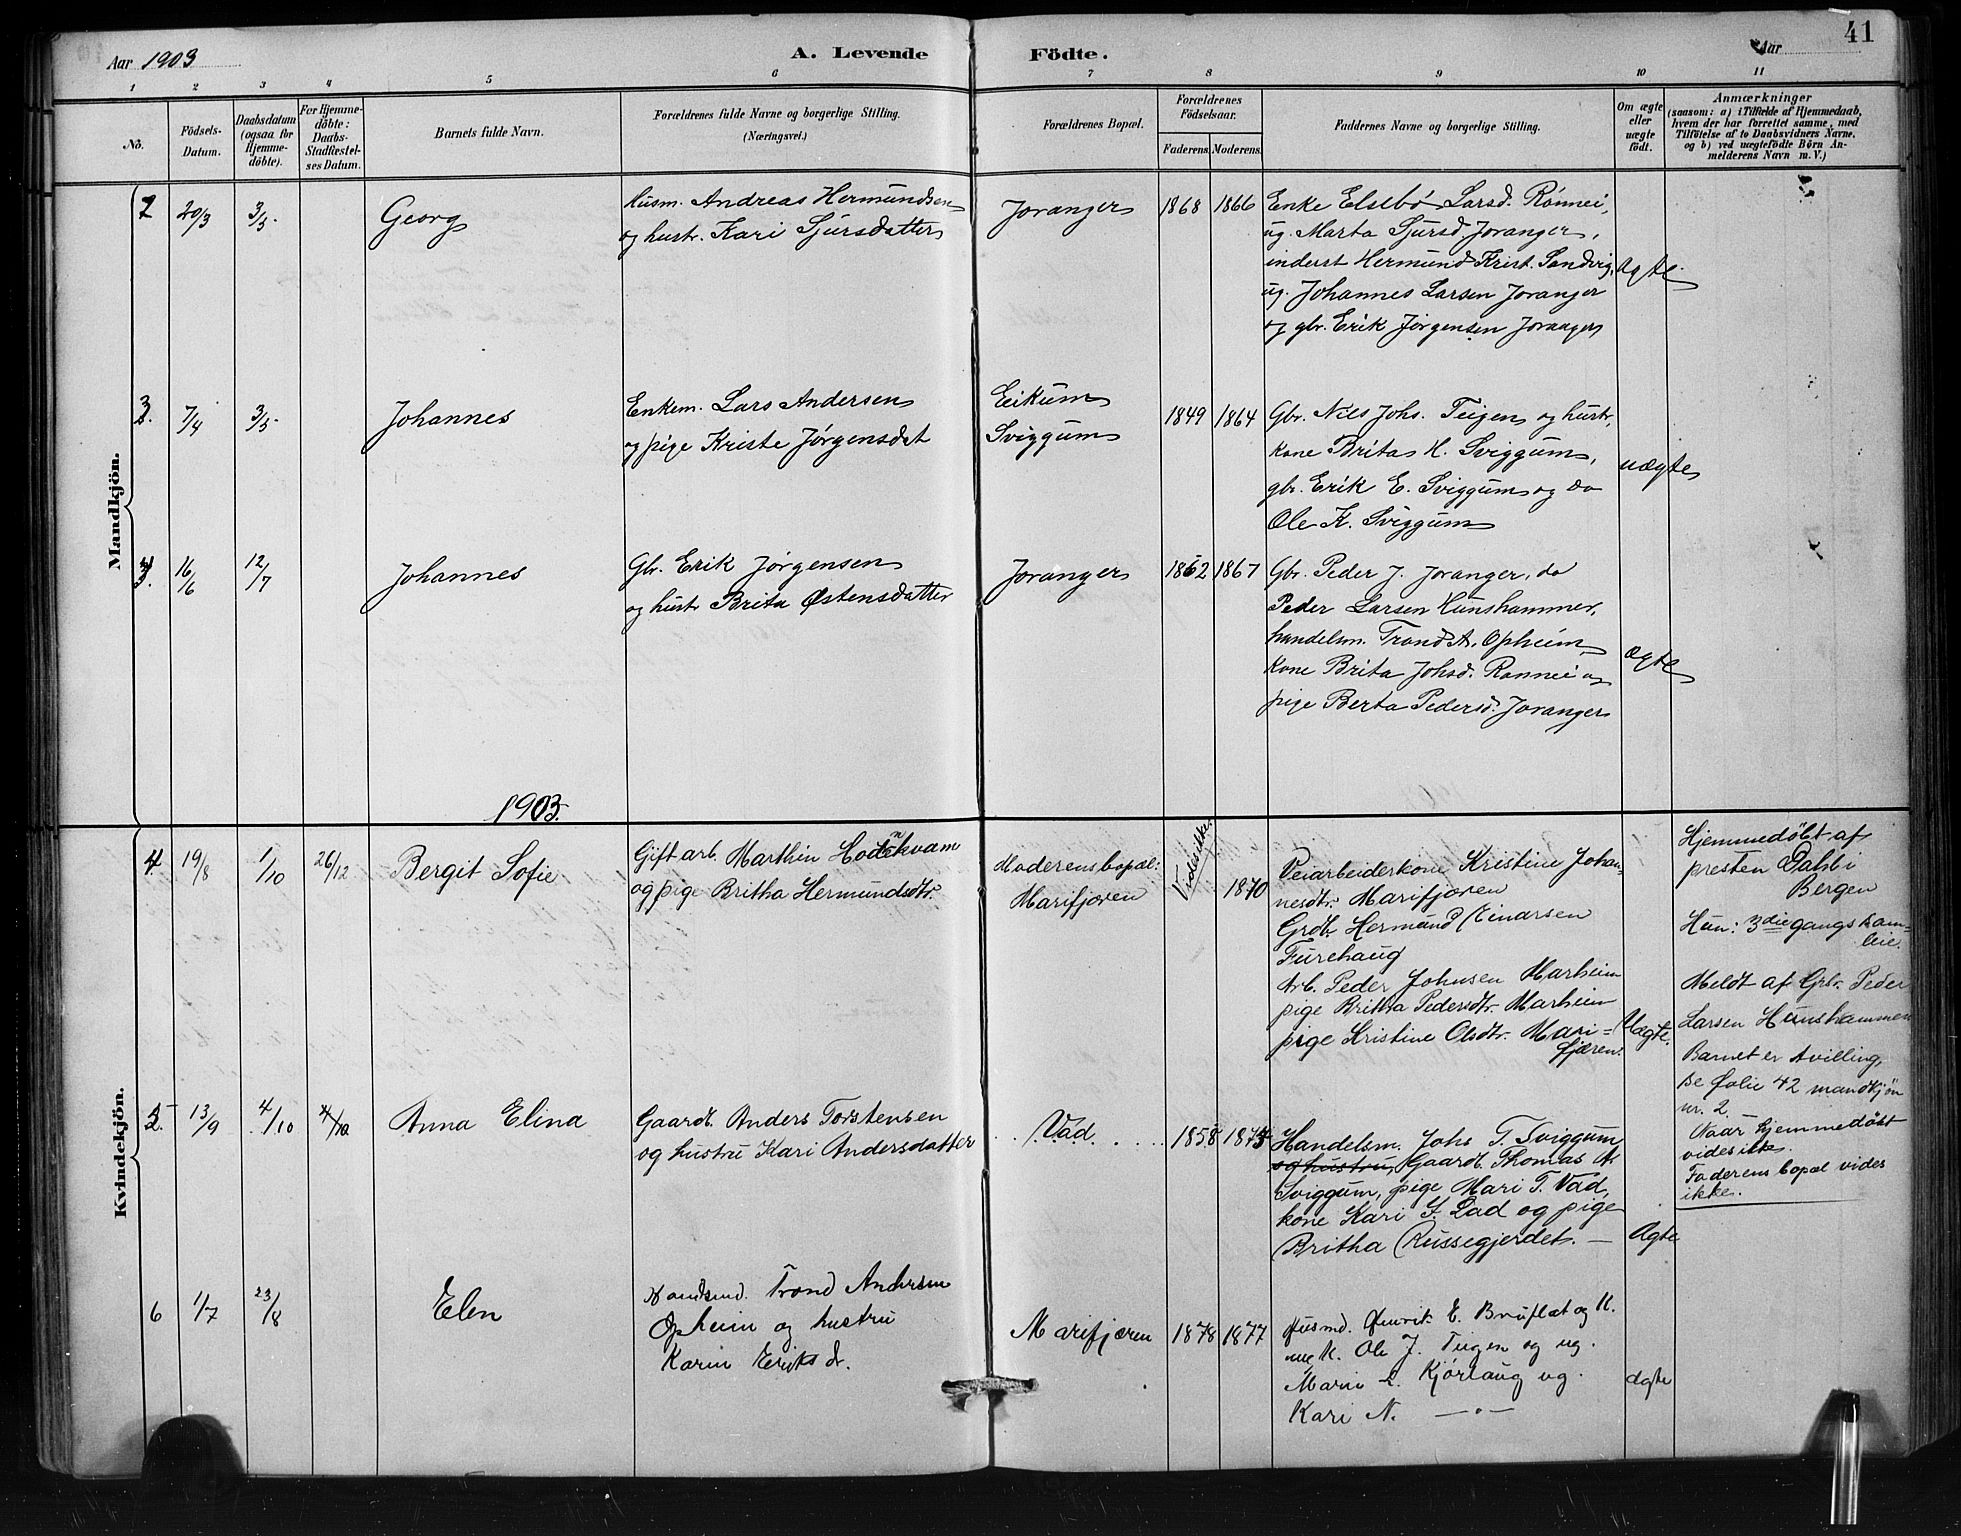 41
Aar 1903
A. Levende Födte.
Aar
1 2 3 4 5 6 7 8 9 10 11
No.
Födsels-
Datum.
Daabsdatum
(ogsaa for
Hjemme-
döbte).
For Hjemme-
döbte:
Daabs-
Stadfæstel-
ses Datum.
Barnets fulde Navn.
Forældrenes fulde Navne og borgerlige Stilling.
(Næringsvei.)
Forældrenes Bopæl.
Forældrenes
Födselsaar.
Faderens.
Moderens.
Faddernes Navne og borgerlige Stilling.
Om ægte
eller
uægte
födt.
Anmærkninger
(saasom: a) i Tilfælde af Hjemmedaab,
hvem der har forrettet samme, med
Tilföielse af to Daabsvidners Navne,
og b) ved uægtefödte Börn An-
melderens Navn m. V.)
Mandkjön.
2 20/3 3/5 Georg
Husm. Andreas Hermundsen
og hustr. Kari Sjursdatter
Joranger
1868 1866
Enke Elsebø Larsd. Rønnei,
ug. Marta Sjursd. Joranger,
inderst Hermund Krist. Sandvig,
ug. Johannes Larsen Joranger
og gbr. Erik Jørgensen Joranger
Ægte
3 7/4 3/5 Johannes
Enkem. Lars Andersen
og pige Kriste Jørgensdat
Eikum
Sviggum
1849 1864
Gbr. Nils Johs. Teigen og hustr,
kone Brita H. Sviggum,
gbr. Erik E. Sviggum og do
Ole K. Sviggum
uægte
16/6 12/7 Johannes
Gbr. Erik Jørgensen
og hustr Brita Østensdatter
Joranger
1862 1867
Gbr. Peder J. Joranger, do
Peder Larsen Hunshammer,
handelsm. Trond A. Opheim
Kone Brita Johsd. Rønnei og
pige Berta Pedersd. Joranger
ægte
1903.
Kvindekjön.
4 19/8 1/10 26/12 Bergit Sofie
Gift arb. Marthin Hodnekvam
og pige Britha Hermundsdtr.
Moderens bopæl:
Marifjæren
Vides ikke.
1870
Veiarbeiderkone Kristine Johan-
nesdtr. Marifjæren
Grdb. Hermund Einarsen
Furehaug
Arb. Peder Johnsen Marheim
pige Britha Pedersdtr. Marheim
pige Kristine Olsdtr. Mari=
fjæren.
Uægte.
Hjemmedøbt af
presten Dahl i
Bergen
Hun: 3die gangs
leie.
Meldt af Grbr. Peder
Larsen Hunshammen
Barnet er tvilling,
se Folie 42 mandkjøn
nr. 2.
Naar hjemmedøbt
vides ikke.
Faderens bopæl vides
ikke.
5. 13/9 4/10 4/10 Anna Elina
Gaardb. Anders Torstensen
og hustru Kari Andersdatter
Vad.
1858 1875
Handelsm. Johs T. Sviggum
og hustru, Gaardb. Thomas A.
Sviggum, pige Mari T. Vad,
kone Kari S. Vad og pige
Britha Russegjerdet. —
Ægte
6 1/7 23/8 Elen
Handsmd. Trond Andersen
Opheim og hustru
Karin Eriksdr.
Marifjæren
1878 1877
Husmd. Henrik E. Bruflat og K.
Ole J. Teigen og ug.
Marie L. Kjørlaug ug.
Kari N. —"—
ægte